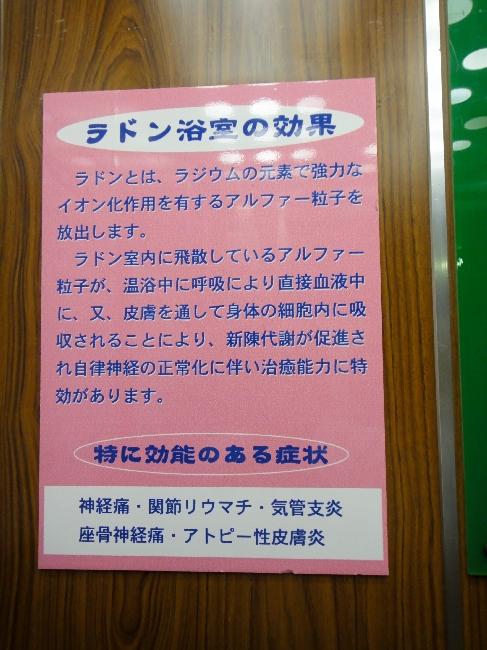 ラドン浴室の効果
ラドンとは、ラジウムの元素で強力な
イオン化作用を有するアルファー粒子を
放出します。
ラドン室内に飛散しているアルファー
粒子が、温浴中に呼吸により直接血液中
に、又、皮膚を通して身体の細胞内に吸
収されることにより、新陳代謝が促進さ
れ自律神経の正常化に伴い治癒能力に特
効があります。
特に効能のある症状
神経痛・関節リウマチ・気管支炎
座骨神経痛・アトピー性皮膚炎